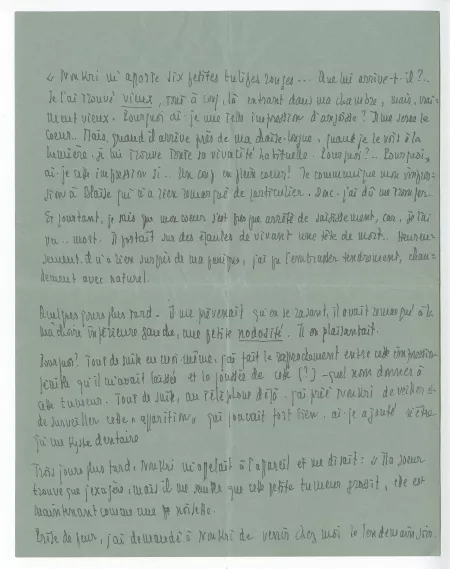 « Noukri m'apporte six petites tulipes rouges... Que lui arrive-t-il ?..
Je l'ai trouvé vieux, tout à coup, là entrant dans ma chambre, mais, vrai-
ment vieux. Pourquoi ai-je une telle impression d'angoisse ? Il me serre le
coeur.. Mais, quand il arrive près de ma chaise-longue, quand je le vois à la
lumière, je lui trouve toute sa vivacité habituelle. Pourquoi ?.. Pourquoi,
ai-je cette impression si... Un coup en plein coeur ! Je communique mon impres-
sion à Blaise qui n'a rien remarqué de particulier. Donc j'ai dû me tromper..
Et pourtant, je sais que mon coeur s'est presque arrêté de saisissement, car, je l'ai
vu.. mort. Il portait sur des épaules de vivant une tête de mort.. Heureu-
sement il n'a rien surpris de ma panique, j'ai pu l'embrasser tendrement, chau-
dement avec naturel.
Quelques jours plus tard - il me prévenait qu'en se rasant, il avait remarqué à la
mâchoire inférieure gauche, une petite nodosité. Il en plaisantait.
Pourquoi ? Tout de suite en moi-même, j'ai fait le rapprochement entre cette impression
pénible qu'il m'avait laissée et la poussée de cette (?) - quel nom donner à
cette tumeur. Tout de suite, au téléphone déjà. j'ai prié Noukri de veiller
de surveiller cette « apparition » qui pouvait fort bien. ai-je ajouté n'être
qu'un kyste dentaire
Trois jours plus tard, Noukri m'appelait à l'appareil et me disait : « Ma soeur
trouve que j'exagère, mais il me semble que cette petite tumeur grossit, elle est
maintenant comme une noisette.
Prise de peur, j'ai demandé à Noukri de venir chez moi le lendemain soir.